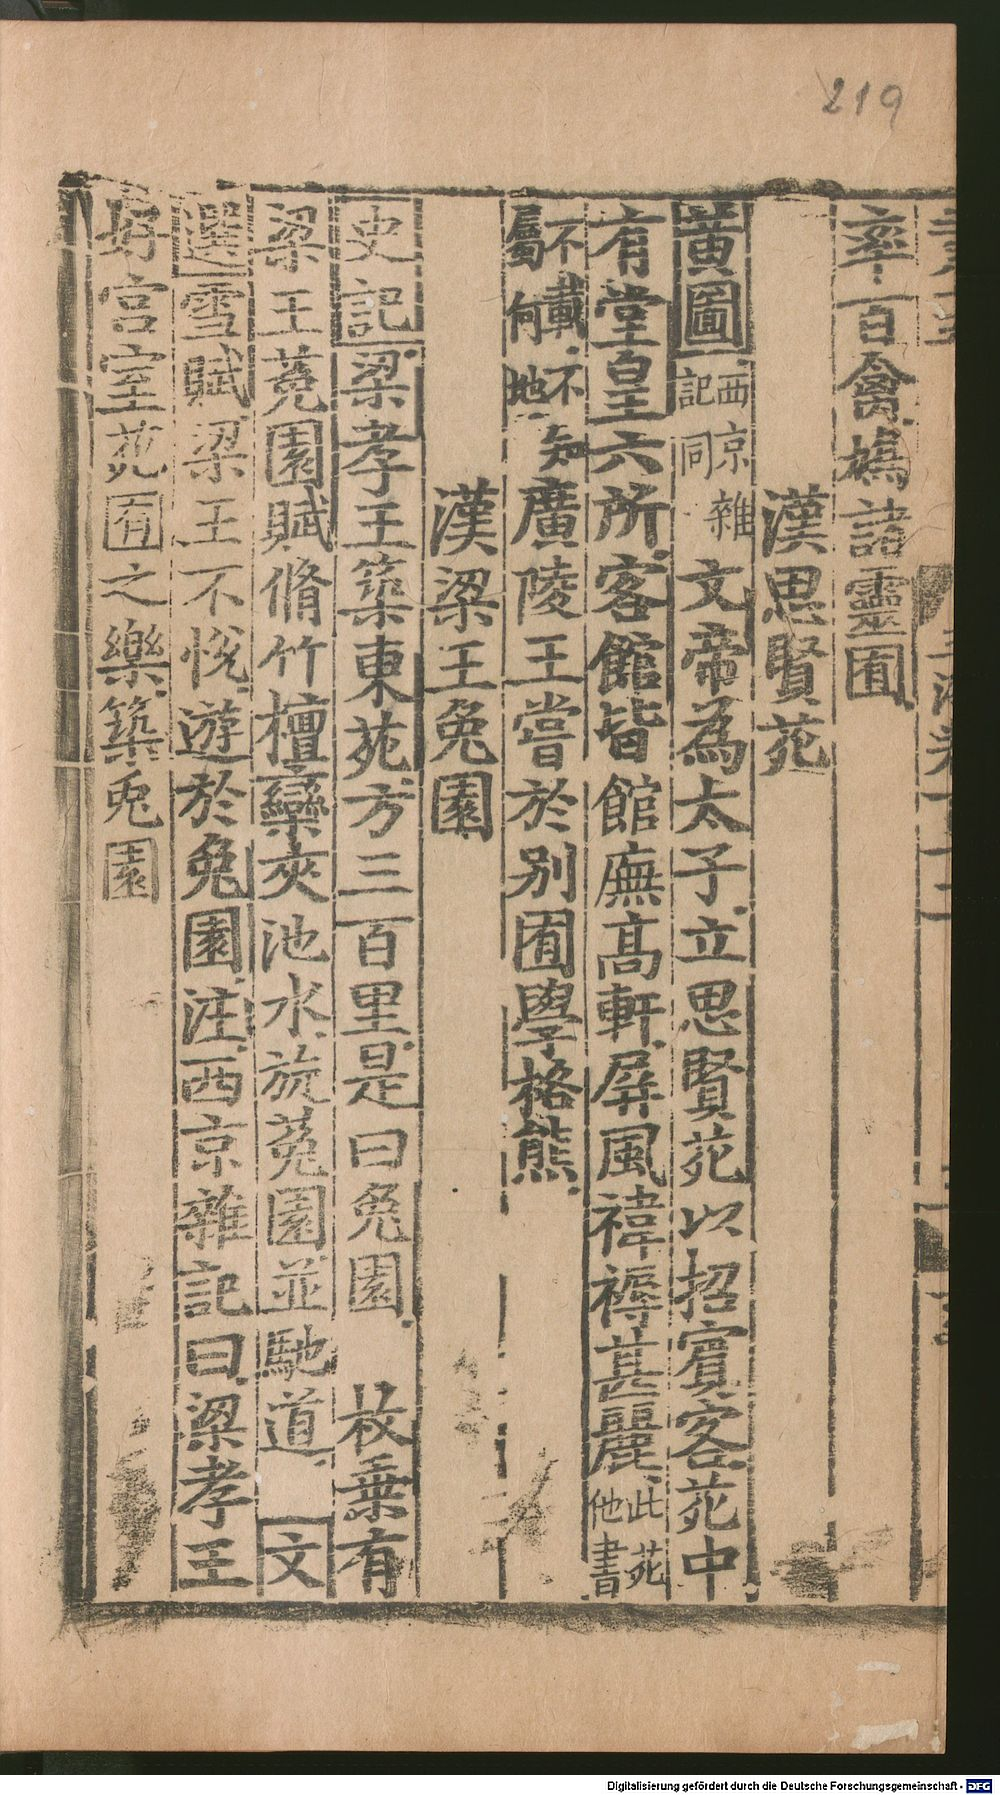 219
率百禽鳩諸靈囿
漢思賢苑
黃圖西京雜記同文帝為太子立思賢苑以招賓客苑中
有堂皇六所客館皆館廡高軒屏風褘褥甚麗此苑他書
不載不知屬何地廣陵王嘗於別囿學格熊
漢梁王兔園
史記梁孝王築東苑方三百里是曰兔園枚乗有
梁王菟園賦脩竹檀欒夾池水旋菟園並馳道文
選雪賦梁王不悅遊於兔園注西京雜記曰梁孝王
好宮室苑囿之樂築兎園
Digitalisierung gefördert durch die Deutsche Forschungsgemeinschaft - DFG